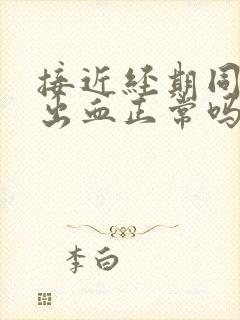 接近经期同
出血正常吗
李白